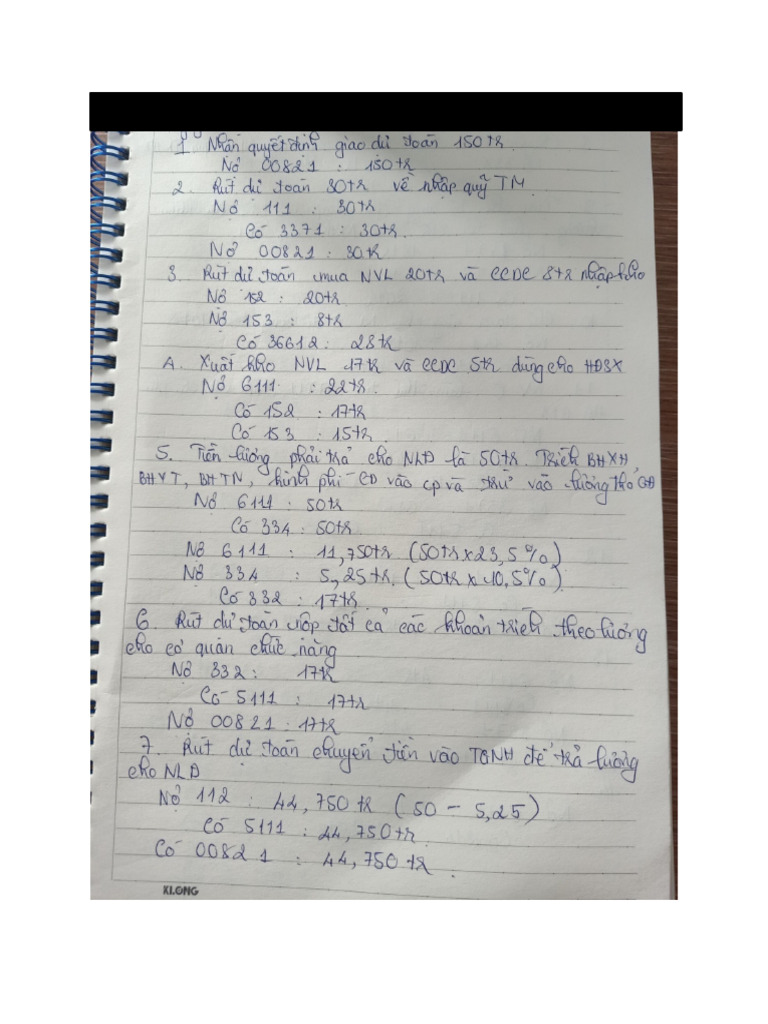 1. Nhận quyết định giao dự toán 150tr.
Nợ 00821 : 150tr
2. Rút dự toán 30tr về nhập quỹ TM
Nợ 111 : 30tr
Có 3371 : 30tr.
Nợ 00821 : 30tr
3. Rút dự toán mua NVL 20tr và CCDC 8tr nhập kho
Nợ 152 : 20tr
Nợ 153 : 8tr
Có 36612 : 28tr
4. Xuất kho NVL 17tr và CCDC 5tr dùng cho HĐSX
Nợ 6111 : 22tr.
Có 152 : 17tr
Có 153 : 15tr.
5. Tiền lương phải trả cho NLĐ là 50tr. Trích BHXH,
BHYT, BHTN, kinh phí CĐ vào cp và trừ vào lương theo QĐ
Nợ 6111 : 50tr
Có 334 : 50tr.
Nợ 6111 : 11,750tr (50tr x 23,5%)
Nợ 334 : 5,25tr. (50tr x 10,5%)
Có 332 : 17tr.
6. Rút dự toán nộp tất cả các khoản trích theo lương
cho cơ quan chức năng
Nợ 332 : 17tr
Có 5111 : 17tr
Nợ 00821 : 17tr
7. Rút dự toán chuyển tiền vào TGNH để trả lương
cho NLĐ
Nợ 112 : 44,750tr (50 - 5,25)
Có 5111 : 44,750tr.
Có 00821 : 44,750tr.
KLONG